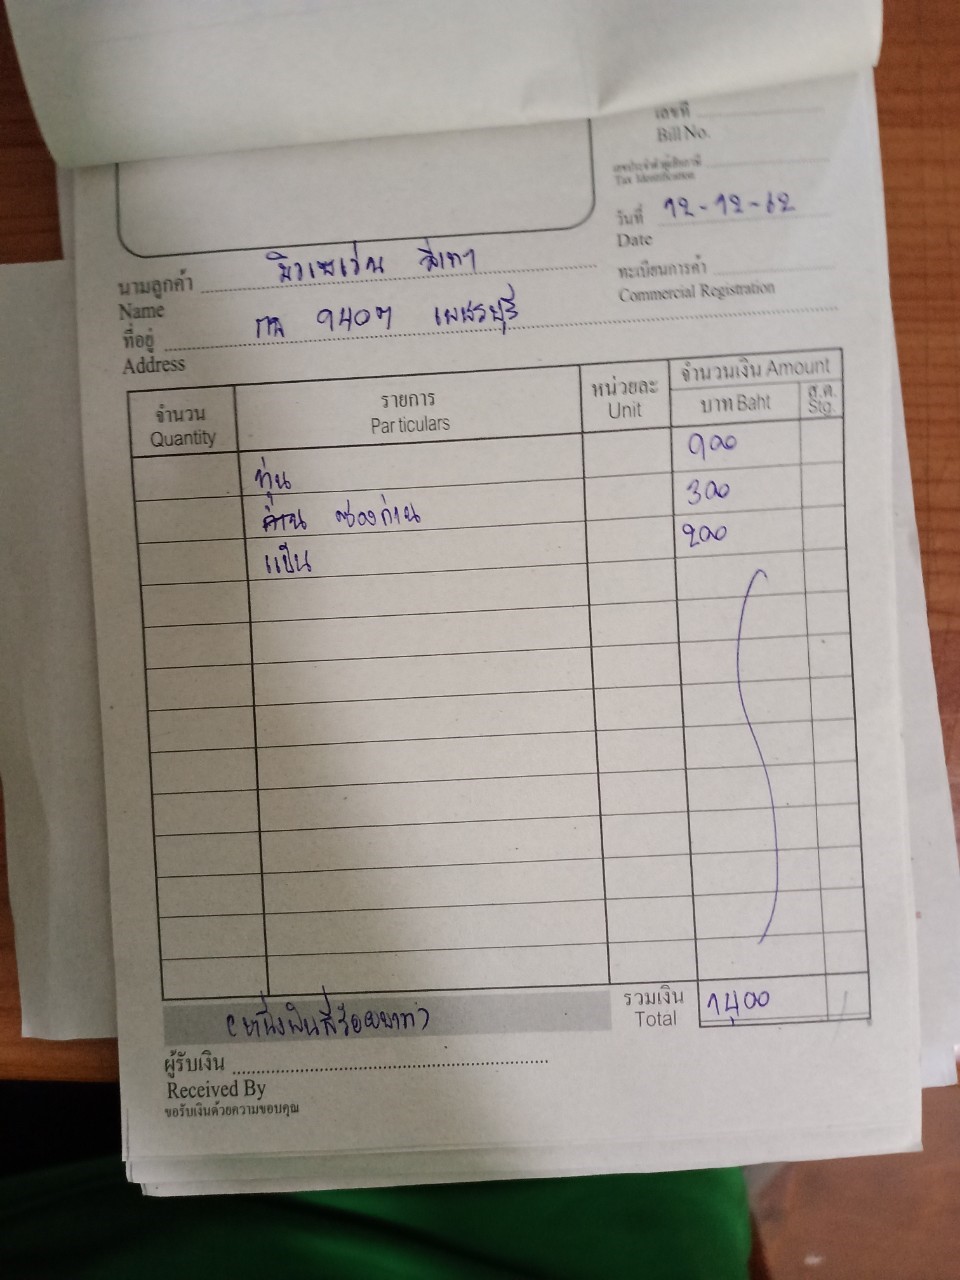 เลขที่
Bill No.
เลขประจำตัวผู้เสียภาษี
Tax Identification
วันที่ 12-12-62
Date
นามลูกค้า
Name
ทะเบียนการค้า
Commercial Registration
ที่อยู่ เพชรบุรี
Address
จำนวน รายการ หน่วยละ จำนวนเงิน Amount
Quantity Particulars Unit บาท Baht ส.ต. Stg.
ทุ่น 900
ซองถ่าน 300
แป้น 200
(หนึ่งพันสี่ร้อยบาท) รวมเงิน 1400
Total
ผู้รับเงิน
Received By
ขอรับเงินด้วยความขอบคุณ